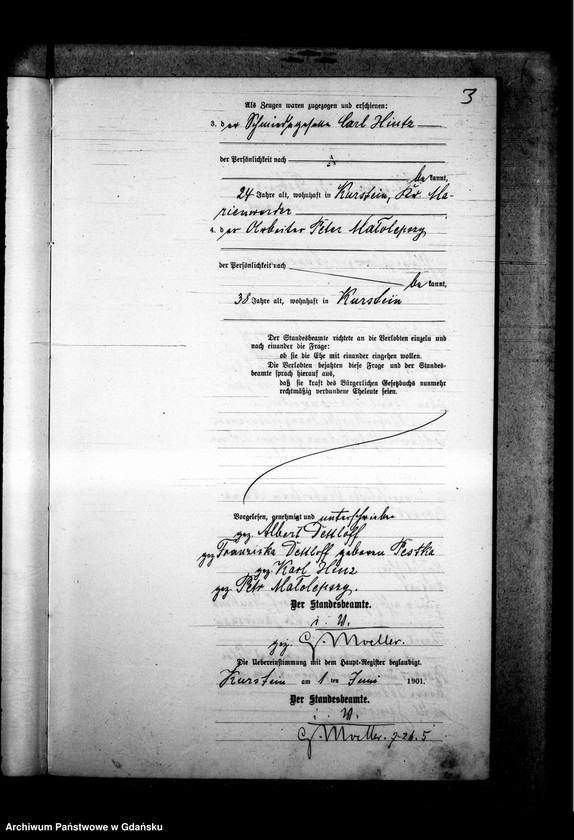 3
Als Zeugen waren zugezogen und erschienen:
3. der Schmiedegeselle Carl Hintz
der Persönlichkeit nach
bekannt,
24 Jahre alt, wohnhaft in Kurstein, Kr. Ma-
rienwerder
4. der Arbeiter Peter Małolepszy
der Persönlichkeit nach
bekannt,
38 Jahre alt, wohnhaft in Kurstein
Der Standesbeamte richtete an die Verlobten einzeln und
nach einander die Frage:
ob sie die Ehe mit einander eingehen wollen.
Die Verlobten bejahten diese Frage und der Standes-
beamte sprach hierauf aus,
daß sie kraft des Bürgerlichen Gesetzbuchs nunmehr
rechtmäßig verbundene Eheleute seien.
Vorgelesen, genehmigt und unterschrieben
gez. Albert Dettloff
gez. Franziska Dettloff geboren Pestka
gez. Karl Hinz
gez. Petr Małolepszy.
Der Standesbeamte.
i. V.
gez. G. Moeller.
Die Uebereinstimmung mit dem Haupt-Register beglaubigt.
Kurstein am 1 ten Juni 1901.
Der Standesbeamte.
i. V.
G. Moeller.
Archiwum Państwowe w Gdańsku